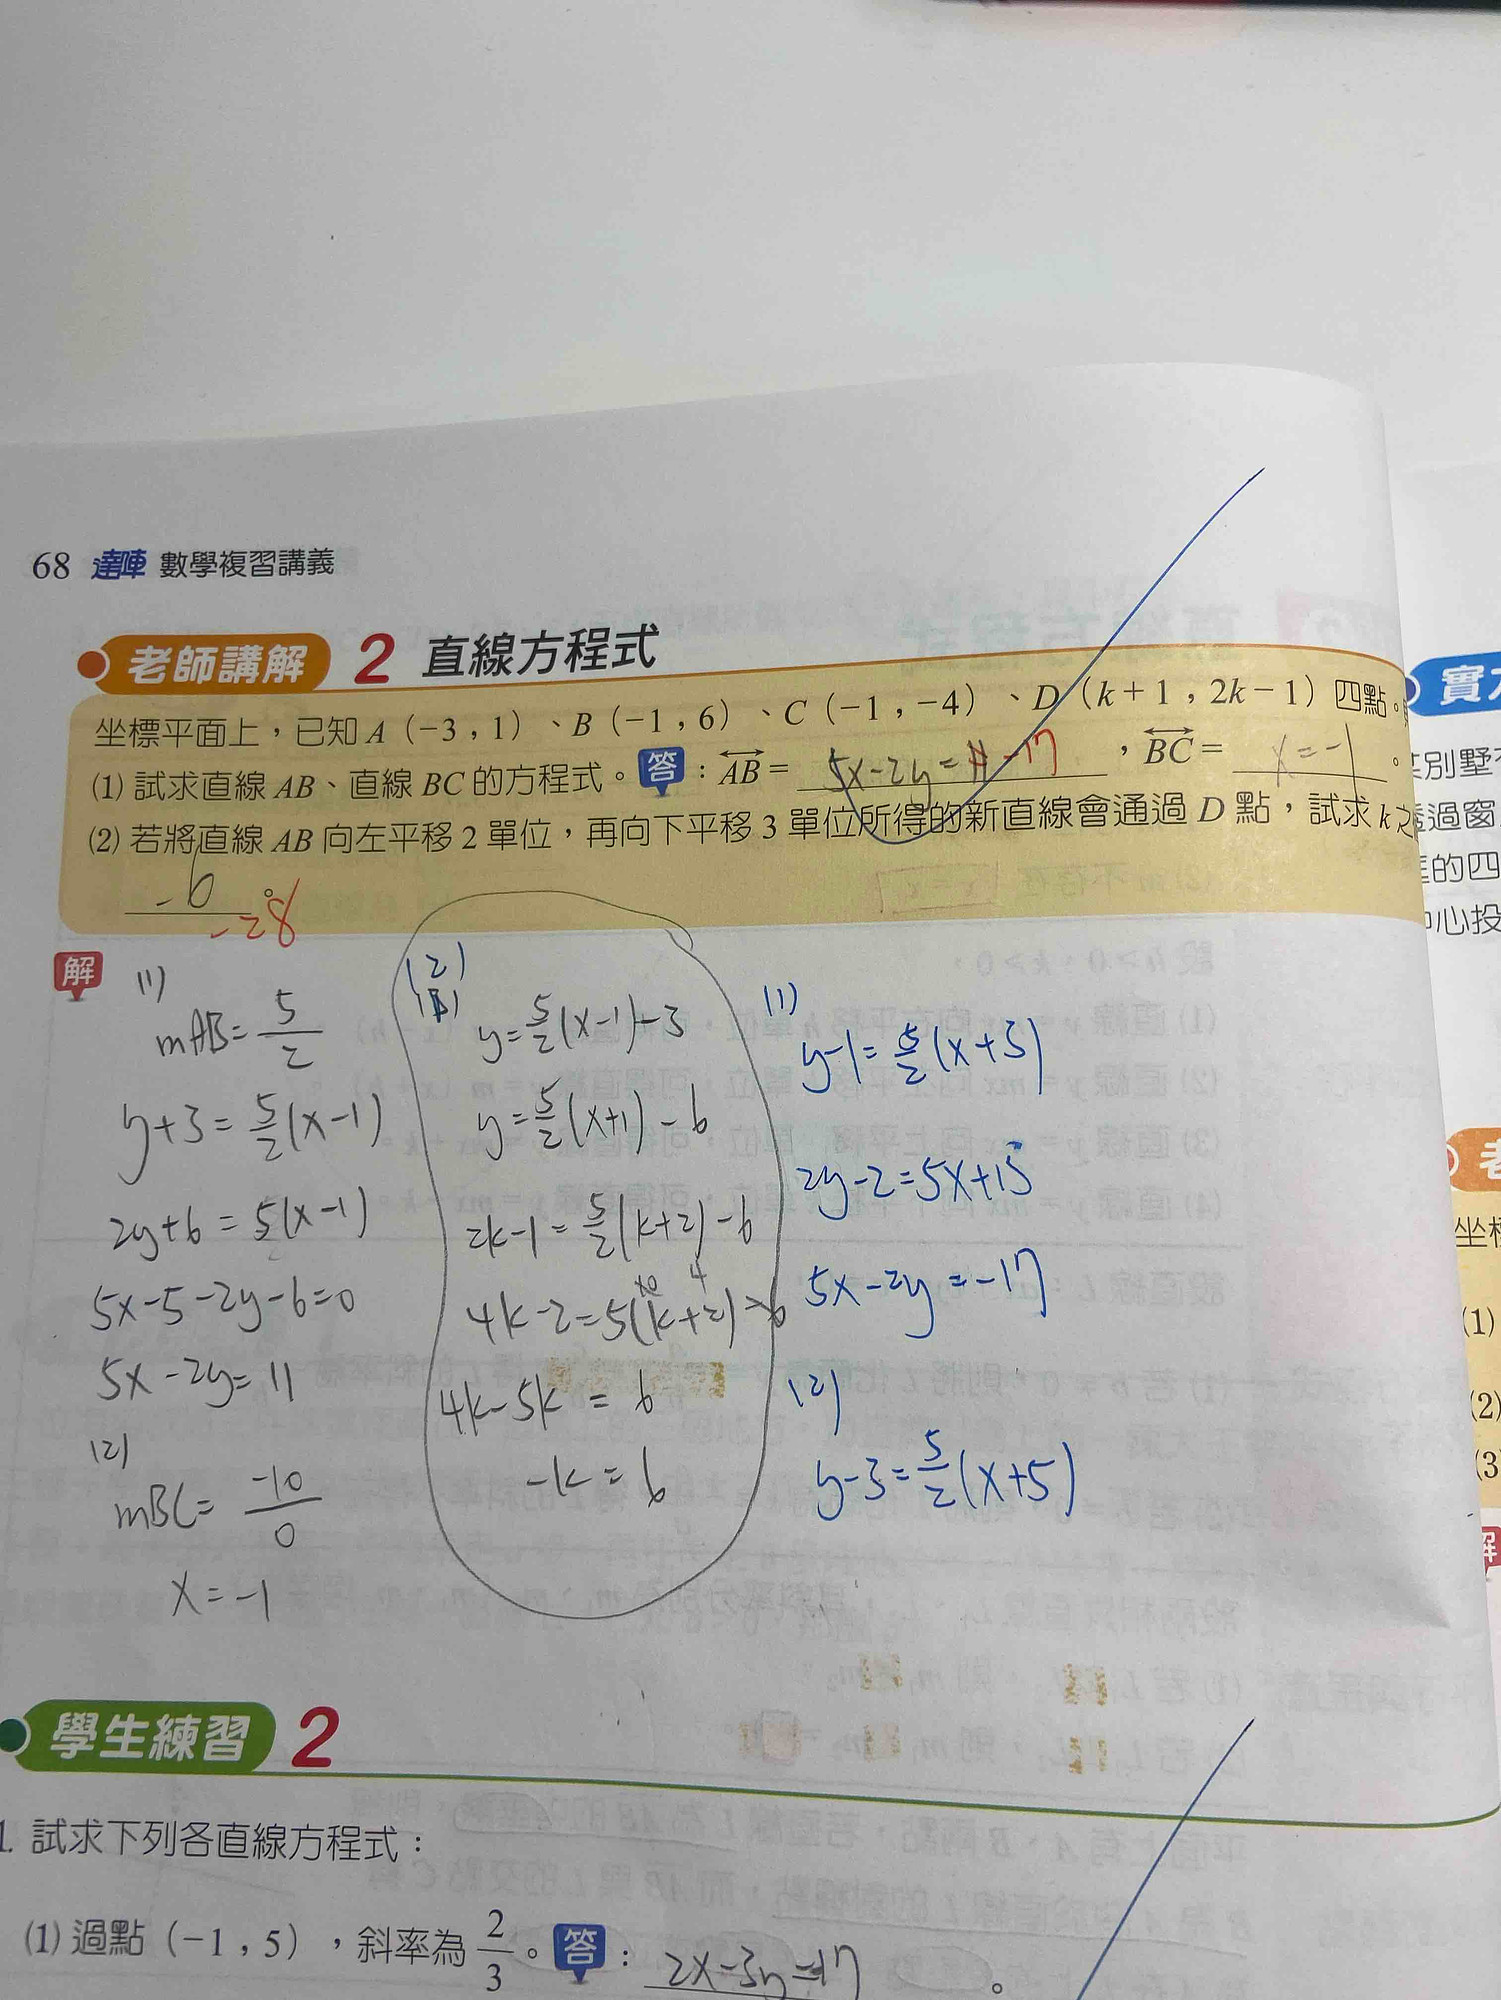 68 達陣 數學複習講義
老師講解 2 直線方程式
坐標平面上,已知 A(-3,1)、B(-1,6)、C(-1,-4)、D(k+1,2k-1)四點。
(1) 試求直線 AB、直線 BC 的方程式。答:AB= 5x-2y=11 -17 ,BC= x=-1 。
(2) 若將直線 AB 向左平移 2 單位,再向下平移 3 單位所得的新直線會通過 D 點,試求 k 之
-6
-28
解
(1)
mAB=5/2
y+3=5/2(x-1)
2y+6=5(x-1)
5x-5-2y-6=0
5x-2y=11
(2)
mBC=-10/0
x=-1
(2)
y=5/2(x-1)-3
y=5/2(x+1)-6
2k-1=5/2(k+2)-6
4k-5k=6
-k=6
(1)
y-1=5/2(x+3)
2y-2=5x+15
5x-2y=-17
(2)
y-3=5/2(x+5)
學生練習 2
1. 試求下列各直線方程式:
(1) 過點(-1,5),斜率為 2/3。答: 2x-3y=-17 。
別墅
過窗
的四
心投
坐標
(1)
(2)
(3)
解